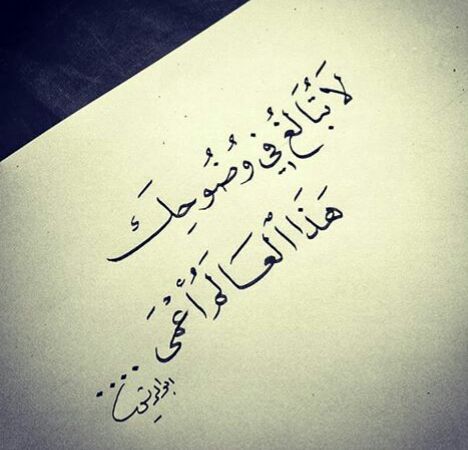 لَا تُبَالَغْ فِي وُضُوحِكَ
هَذَا الْعَالَمَ أَعْمَى ....